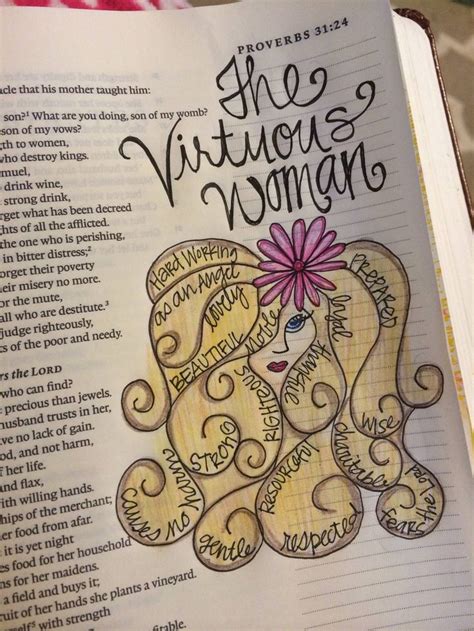 PROVERBS 31:24
The
Virtuous
Woman
acle that his mother taught him:
son?¹ What are you doing, son of my womb?
son of my vows?
gth to women,
who destroy kings.
muel,
drink wine,
strong drink,
rget what has been decreed
ghts of all the afflicted.
the one who is perishing,
in bitter distress;²
forget their poverty
their misery no more.
for the mute,
all who are destitute.³
judge righteously,
s of the poor and needy.
rs the LORD
who can find?
precious than jewels.
husband trusts in her,
ve no lack of gain.
od, and not harm,
f her life.
with willing hands.
hips of the merchant;
er food from afar.
it is yet night
es food for her household
ns for her maidens.
a field and buys it;
fruit of her hands she plants a vineyard.
rself⁵ with strength
fitable.
Hard Working
as an Angel
lovely
BEAUTIFUL
Noble
STRONG
RIGHTEOUS
Humble
loyal
PREPARED
WISE
charitable
Fears the Lord
RESOURCEFUL
respected
gentle
causes
no harm